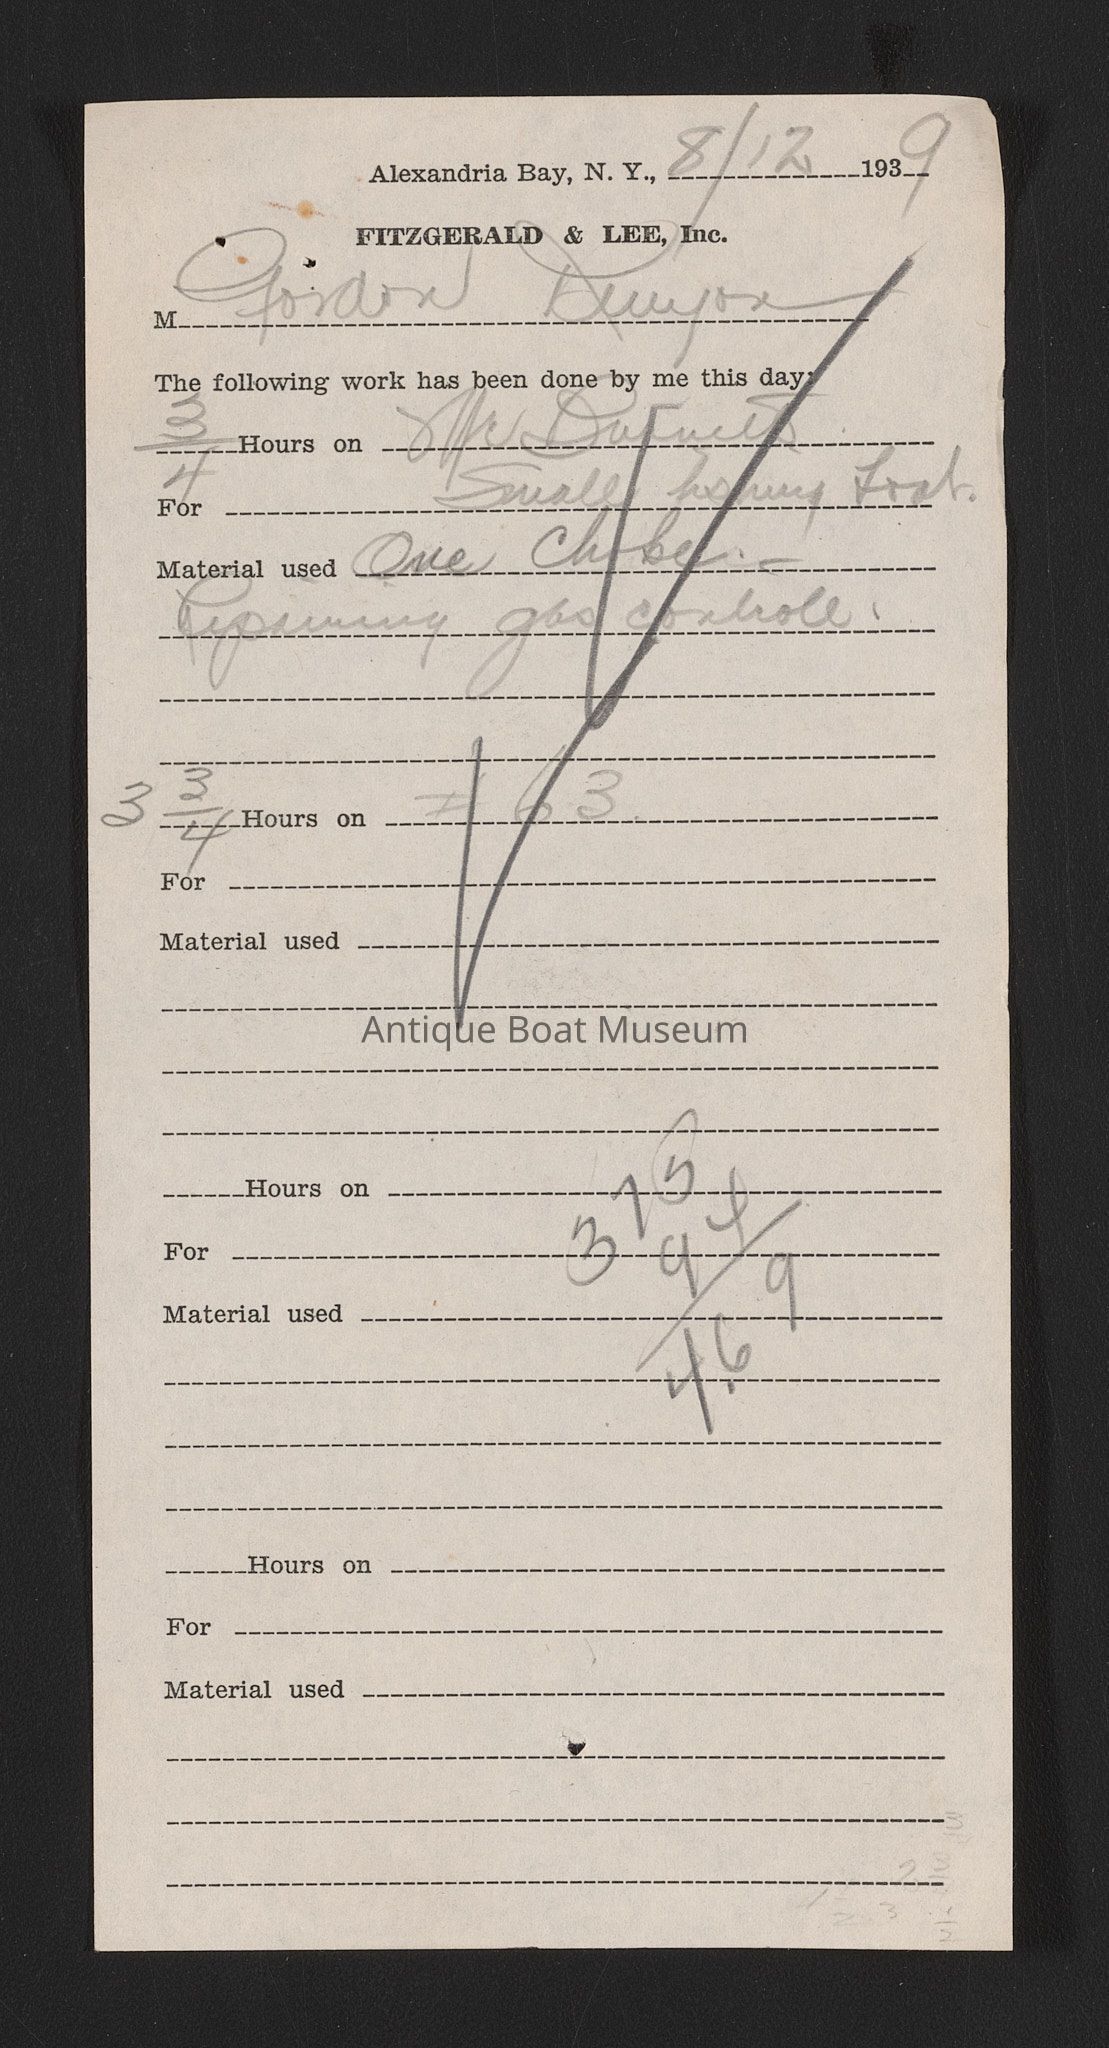 Alexandria Bay, N. Y., 8/12 1939
FITZGERALD & LEE, Inc.
M Gordon Runyon
The following work has been done by me this day:
3/4 Hours on Mr
For Small fishing boat.
Material used One Choke. -
Repairing gas controle.
3 3/4 Hours on # 63.
For
Material used
Antique Boat Museum
Hours on
375
For
94
Material used
469
Hours on
For
Material used